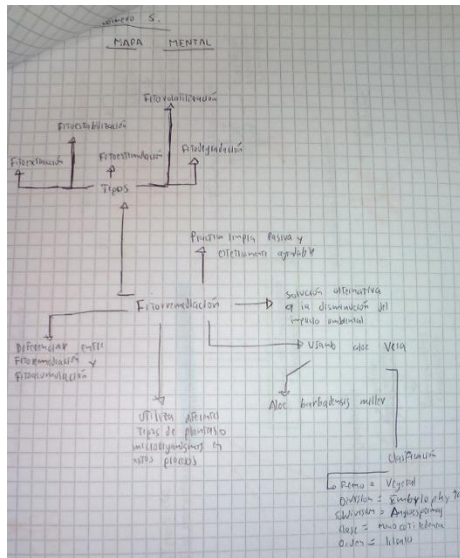 MAPA MENTAL
Fitovolatilización
Fitoestabilización
Fitoextracción
Fitoestimulación
Fitodegradación
Tipos
Practica limpia Pasiva y
esteticamente agradable
Fitorremediación
Solución alternativa
a la disminución del
impacto ambiental
Diferencias entre
Fitorremediación y
Fitoacumulación
aloe Vera
Aloe barbadensis miller
Utiliza diferentes
Tipos de plantas o
microorganismos en
estos procesos
Clasificación
Reino = Vegetal
División = Embryophyta
Subdivisión = Angiospermas
Clase = monocotiledonea
Orden =